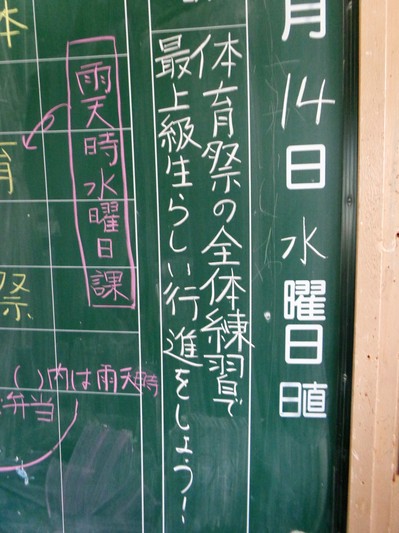 月14日水曜日日直
体育祭の全体練習で
最上級生らしい行進をしよう！
雨天時水曜日課
育
祭
( )内は雨天時
弁当